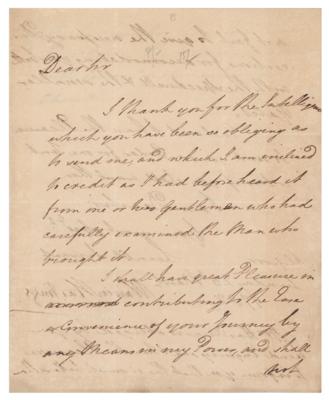 Dear Sir
I thank you for the Intelligence
which you have been so obliging as
to send me, and which I am inclined
to credit as I had before heard it
from one or two gentlemen who had
carefully examined the Man who
brought it.
I shall have great Pleasure in
contributing to the Ease
& Convenience of your Journey by
any Means in my Power, and shall
not